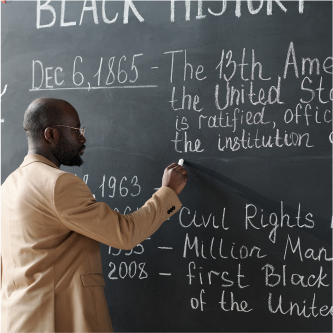 BLACK HISTORY
DEC 6, 1865 - The 13th Ame
the United Sta
is ratified, offic
the institution o
1963
Civil Rights
1995 - Million Man
2008 - first Black
of the Unite